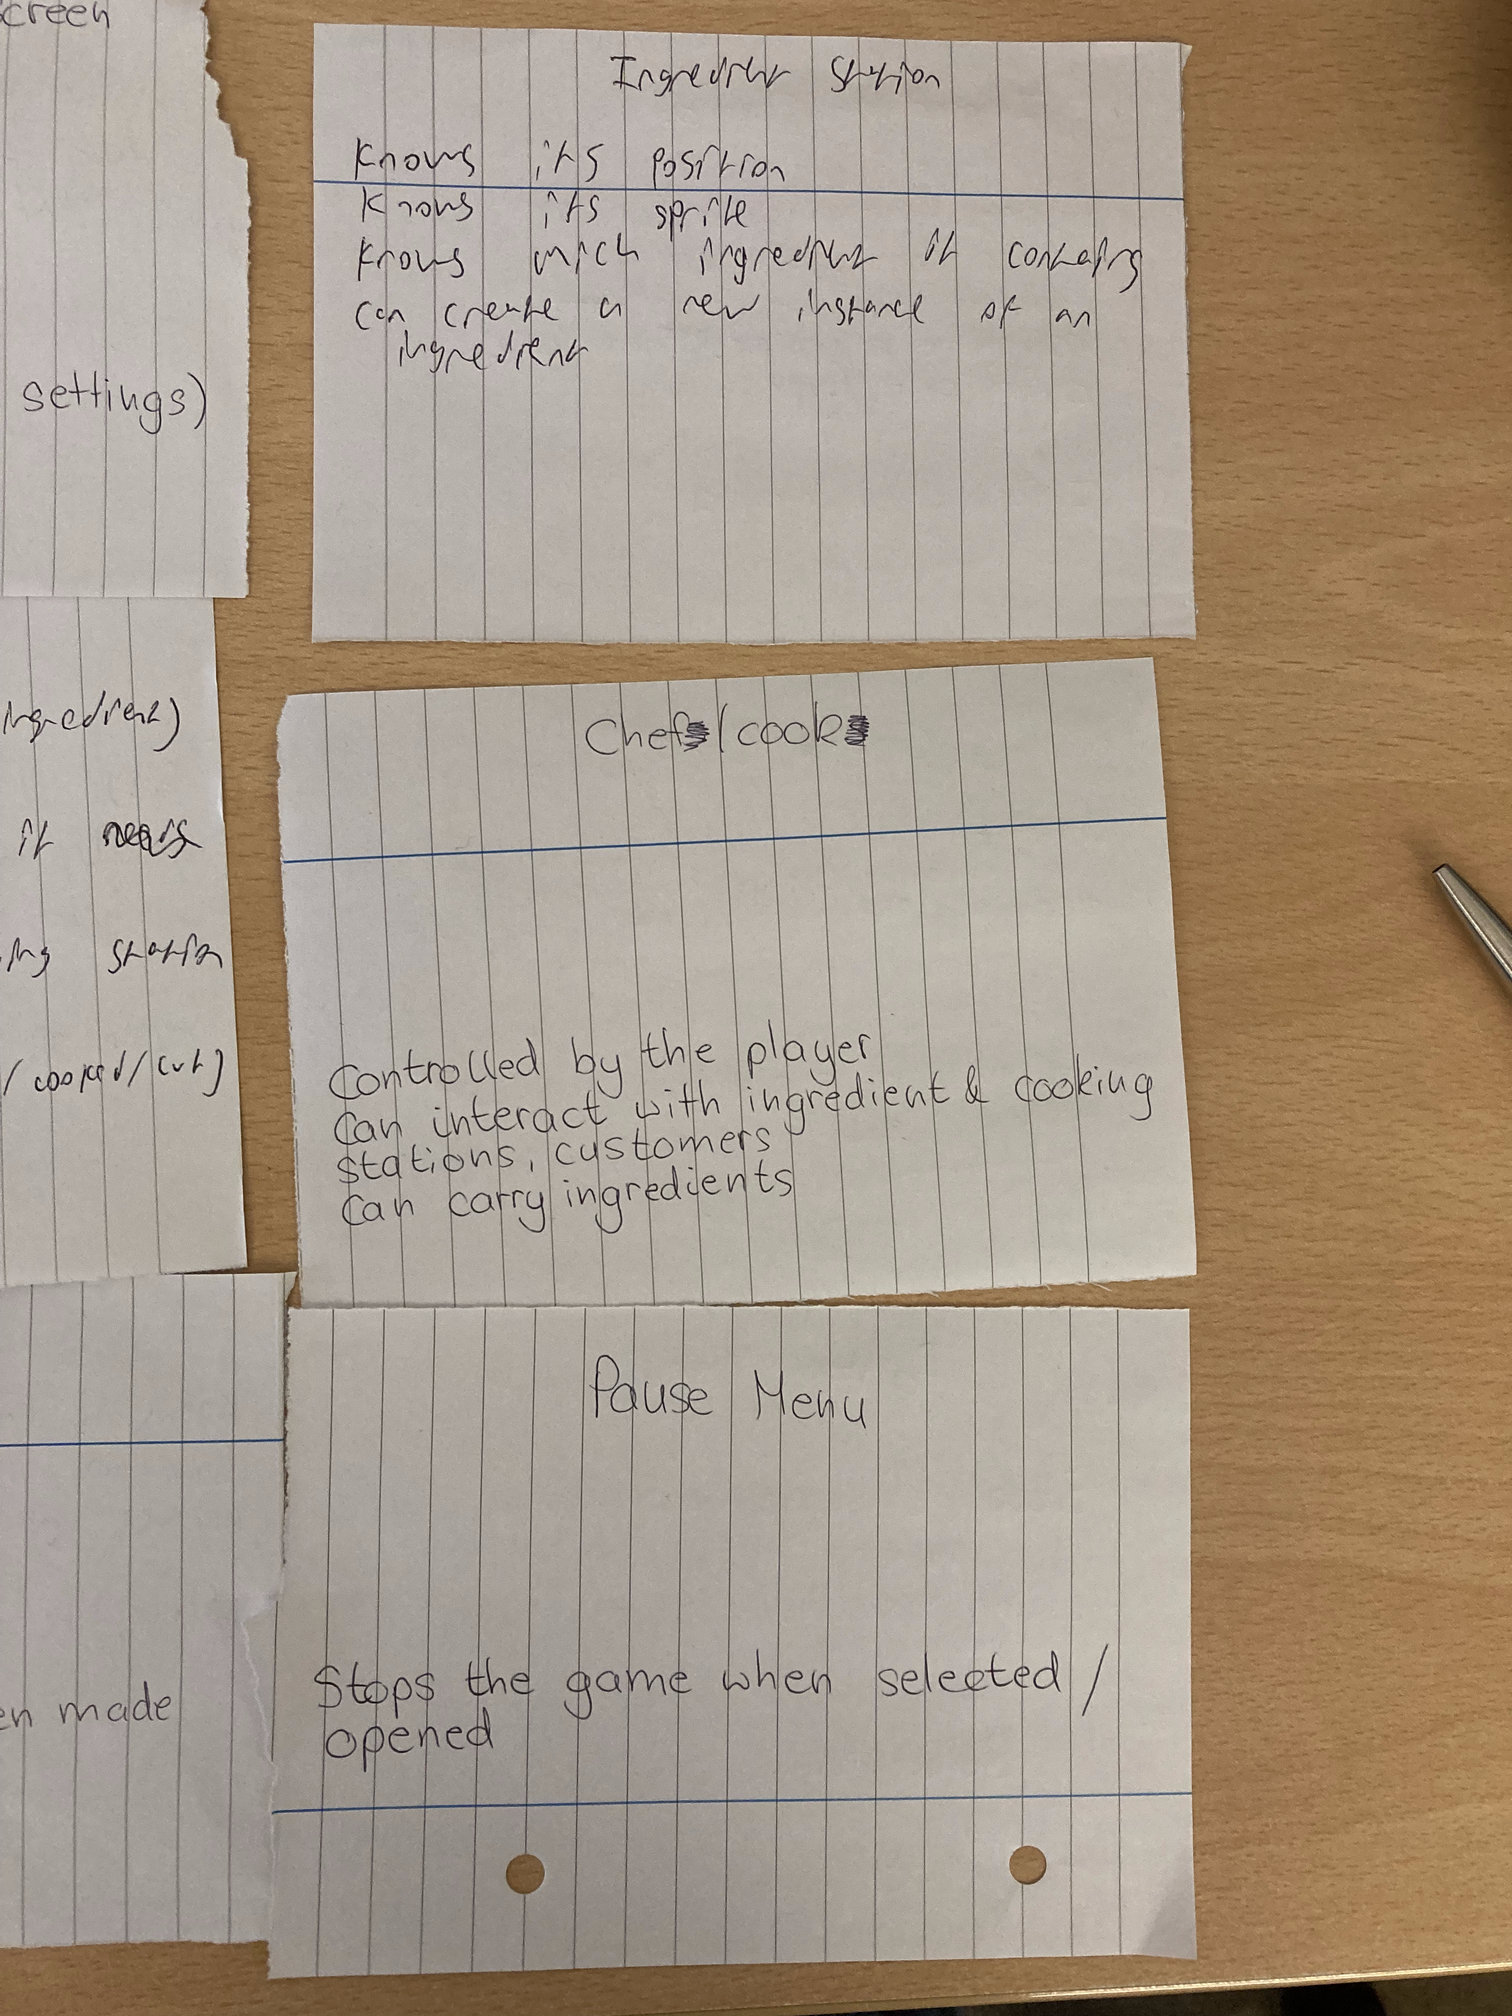 screen
settings)
ingredient)
it needs
ing station
/ cooked/cut)
en made
Ingredient Station
Knows its position
Knows its sprite
Knows wich ingredient it contains
Can create a new instance of an
ingredient
Chef/cook
Controlled by the player
Can interact with ingredient & cooking
stations, customers
Can carry ingredients
Pause Menu
Stops the game when selected /
opened